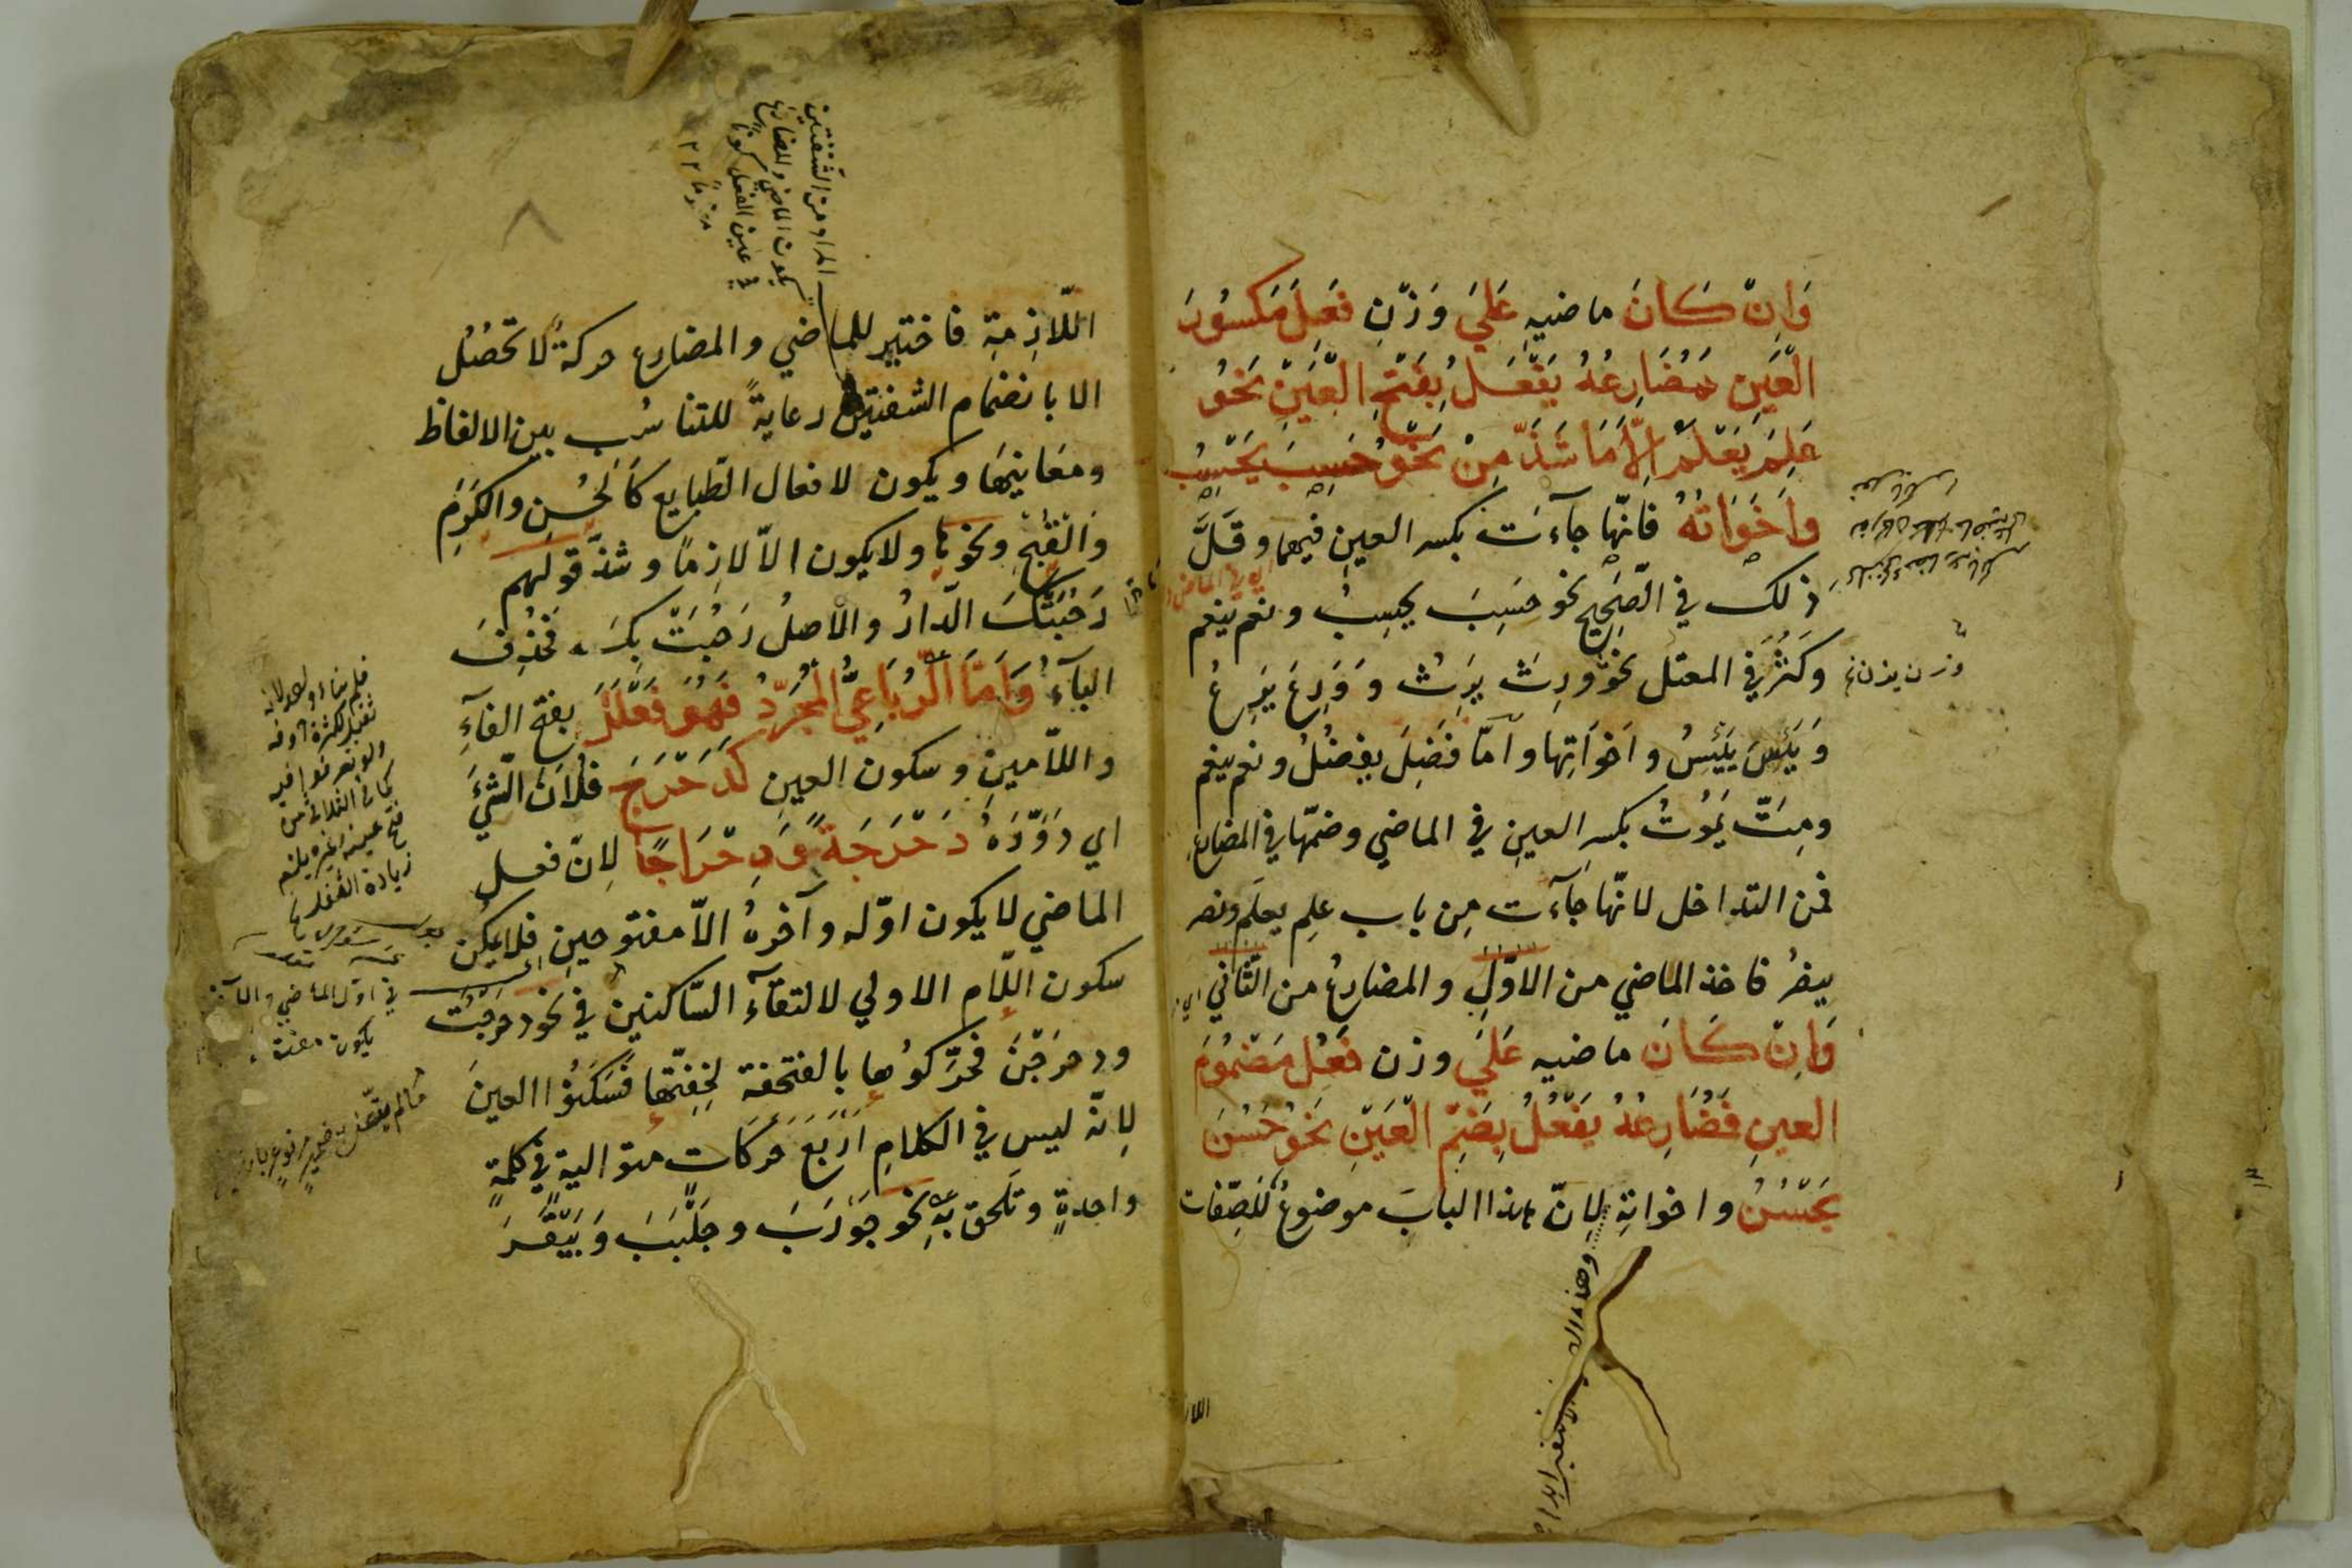 وَاِنْ كَانَ ماضيهِ عَلَيَ وَزْنِ فَعِلَ مَكسُورَ
الْعَيْنِ فَمُضَارِعُهُ يَفْعَلُ بِفَتْحِ الْعَيْنِ نَحْوُ
عَلِمَ يَعْلَمُ اِلَّا مَا شَذَّ مِنْ نَحْوِ حَسِبَ يَحْسِبُ
وَاَخَوَاتُهُ فانّها جآءت بكسر العين فيهما وقَلَّ
ذلك في الصّحيح نحو حَسِبَ يحسِبُ ونعم ينعم
وكَثُرَ في المعتل نحو ورِثَ يَرِثُ وَوَرِعَ يَرِعُ
وَيَئِسَ يَيْئِسُ واَخَوَاتِها وامّا فَضِلَ يفضُلُ ونعم ينعم
ومِتَّ يَمُوتُ بكسرِ العينِ في الماضي وضمّها في المضارع
فمن التداخل لانّها جَآءَت مِن باب علِم يعلَم ونصر
ينصُرُ فاخذ الماضي من الاوّلِ والمضارعُ من الثّاني
وَاِنْ كَانَ ماضيه عَلَيَ وزن فَعُلَ مَضْمُومَ
العينِ فَمُضَارِعُهُ يَفْعُلُ بِضَمِّ الْعَيْنِ نَحْوُ حَسُنَ
يَحْسُنُ واخواتِهِ لانّ هذا البابَ موضوعٌ للصِّفات
وزن يزن
اللا
اللّازِمةِ فاختير للماضي والمضارع حركةٌ لا تحصُلُ
الا بانضمام الشفتين رعايةً للتناسُب بين الالفاظ
ومعانيها ويكون لافعال الطّبايع كالحُسْنِ والكَرَمِ
والقُبْحِ ونحوها ولا يكون الاّ لازِمًا وشذّ قولهم
رَحُبَتْكَ الدّارُ والاصلُ رَحُبَتْ بكَ فحُذِفَ
البآءُ وَاَمَّا الرُّبَاعِيُّ الْمُجَرَّدُ فَهُوَ فَعْلَلَ بفتح الفآءِ
واللاّمينِ وسكون العينِ كَدَحْرَجَ فُلَانٌ الشّيْءَ
اي دَوَّرَهُ دَحْرَجَةً وَدِحْرَاجًا لانّ فعل
الماضي لا يكون اوّله وآخرهُ الاّ مفتوحينِ فلا يمكن
سكون اللّام الاولي لالتقآء السّاكنين في نحو دحرجْتُ
ودحرَجْنَ فحرّكوُها بالفتحفة لخِفّتها فسَكّنُوا العينَ
لانّه ليس في الكلامِ اَرْبَعَ حَركَاتٍ متوالية في كلمةٍ
واحدةٍ وتلحق بهِ نحو جَوْرَبَ وجَلْبَبَ وَبَيْقَرَ
المراد من الشفتين
يكون الماضي والمضارع
في عين الفعل
في اوّل الماضي والآخر
يكون مفتوحا
مالم يتصل به ضمير مرفوع بارز